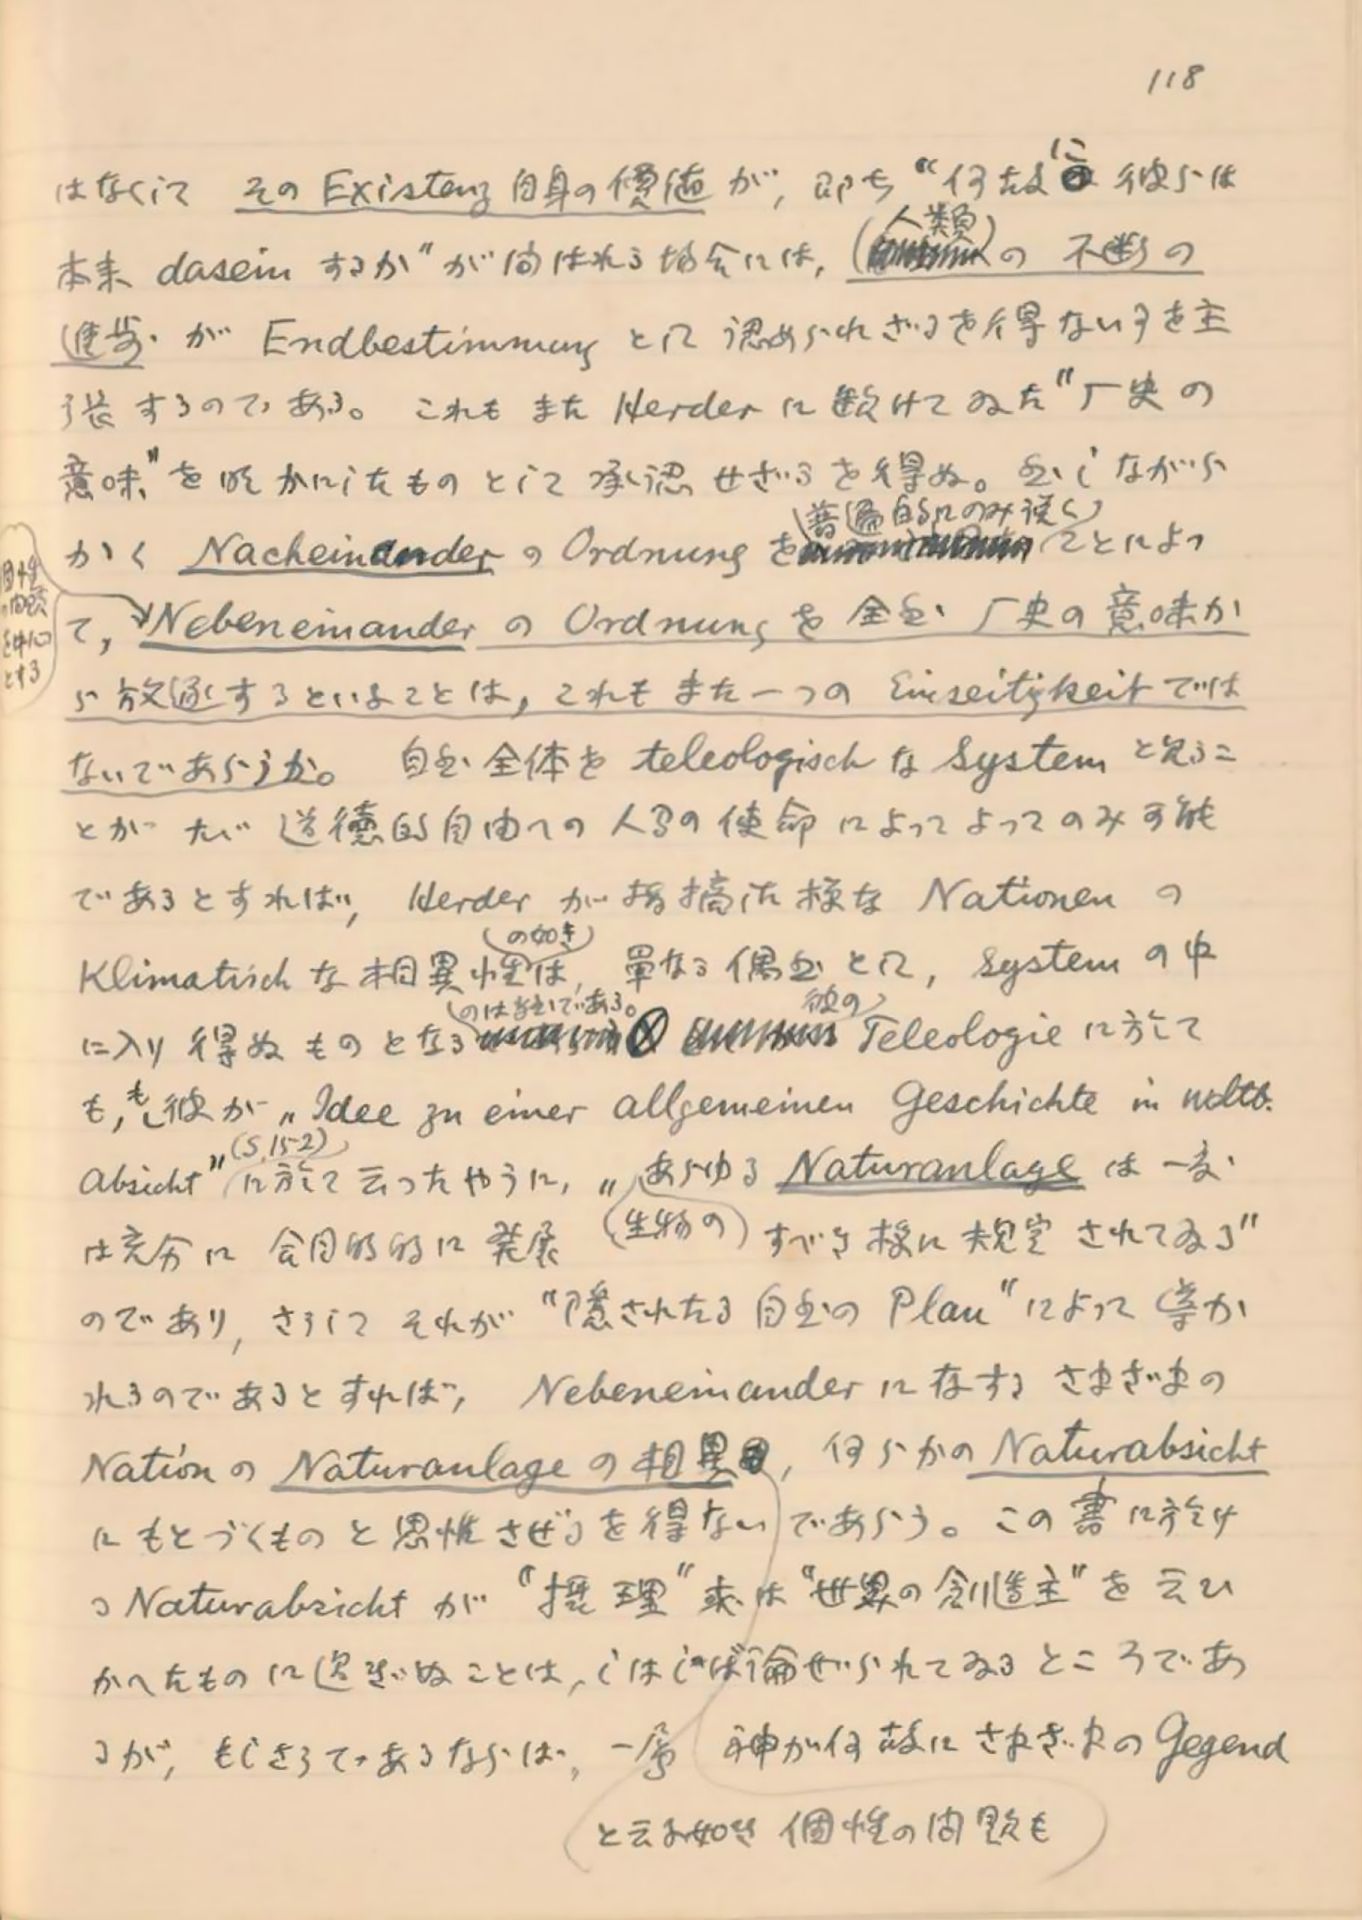 118
はなくして その Existenz 自身の價値 が, 即ち “何故に 彼らは
本来 dasein するか" が問はれる場合には, (人類)の 不断の
進歩 が Endbestimmung として 認めらrれざるを得ない事を主
張するのである。 これも また Herder に 欠けてゐた "厂史の
意味" を 明かにしたもの として 承認 せざるを得ぬ。 然しながら
普遍的にのみ説く
かく Nacheinander の Ordnung を ことによっ
個性の問題を中心とする
て, Nebeneinander の Ordnung を 全然 厂史の意味か
ら放逐するといふことは, これもまた一つの Einseitigkeit では
ないであらうか。 自然全体を teleologisch な System と見るこ
とが たゞ 道徳的自由への 人間の使命 によってよってのみ可能
であるとすれば, Herder が指摘した様な Nationen の
の如き
Klimatisch な相異性は, 單なる偶然として, System の中
のは当然である。 彼の
に入り得ぬものとなる Teleologie に於て
も, もし彼が „Idee zu einer allgemeinen Geschichte in weltb.
Absicht" (S.152) に於て云ったやうに, „あらゆる Naturanlage は一度
は充分に 合目的的に 発展 (生物の) すべき様に規定されてゐる"
のであり, さうして それが “隠されたる自然の Plan" によって導か
れるのであるとすれば, Nebeneinander に存する さまざまの
Nation の Naturanlage の相異, 何らかの Naturabsicht
にもとづくものと思惟せざるを得ないであらう。 この書に於け
る Naturabsicht が “摂理" 或は “世界の創造主" を云ひ
かへたものに過ぎぬことは, しばしば論ぜられてゐるところであ
るが, もしさうであるならば, 一層 神が何故にさまざまの Gegend
と云ふ如き 個性の問題も